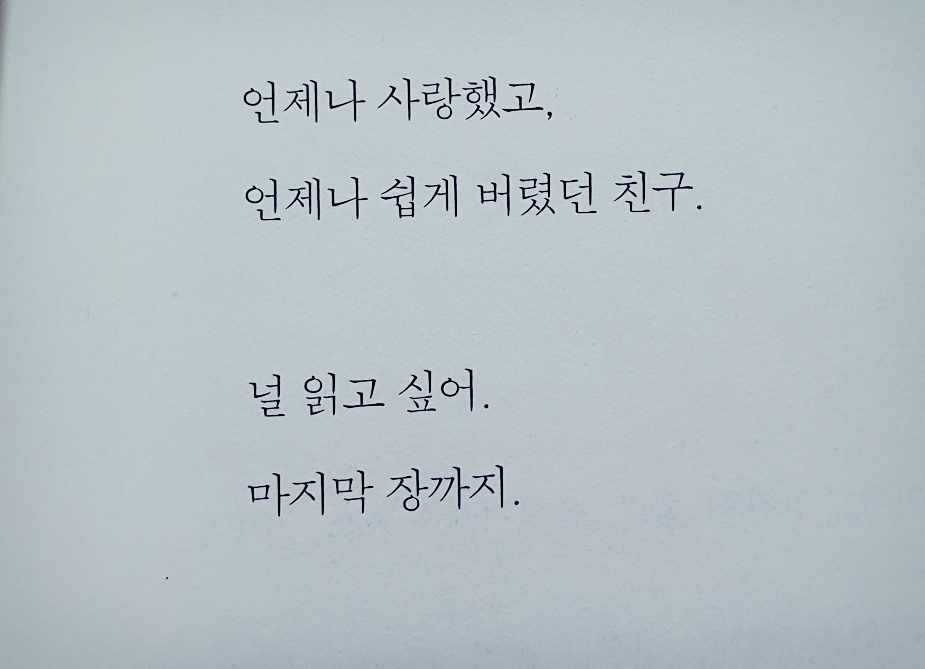 언제나 사랑했고,
언제나 쉽게 버렸던 친구.
널 읽고 싶어.
마지막 장까지.